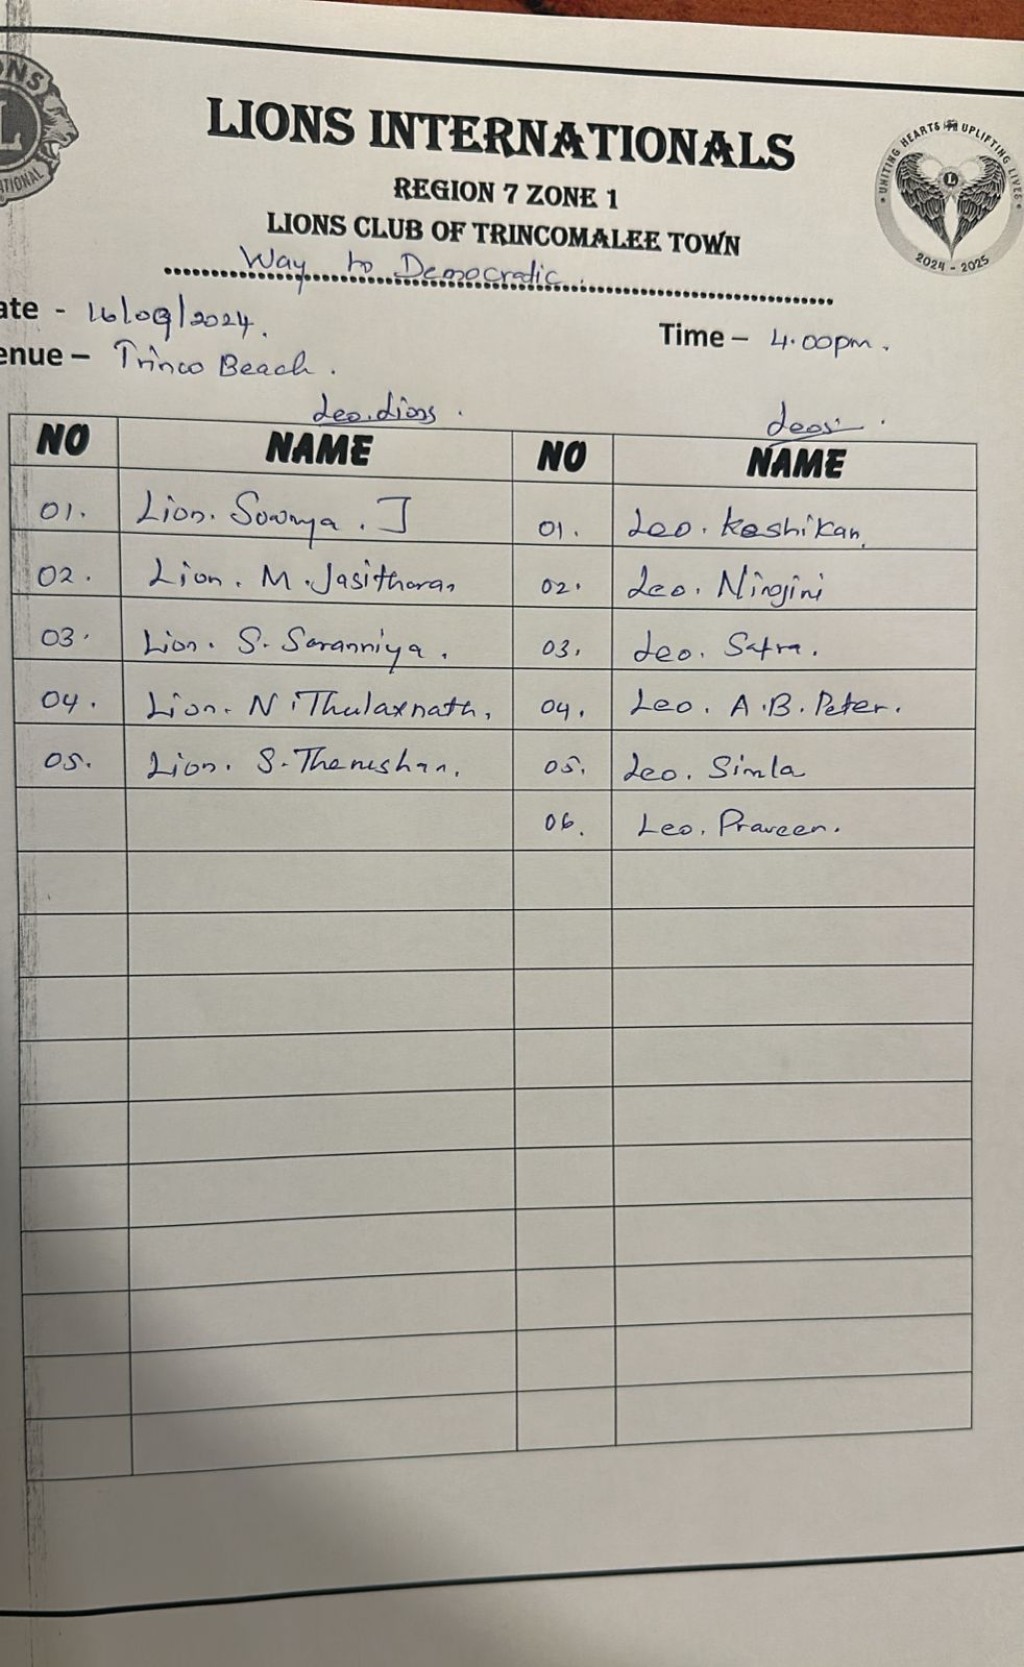 ONS
L
ATIONAL
LIONS INTERNATIONALS
UNITING HEARTS UPLIFTING LIVES
L
2024 - 2025
REGION 7 ZONE 1
LIONS CLUB OF TRINCOMALEE TOWN
Way to Democratic.
ate - 16/09/2024.
Time – 4.00pm.
enue – Trinco Beach.
Leo.Lions.
Leos.
NO NAME NO NAME
01. Lion. Sowmya. J 01. Leo. Koshikan.
02. Lion. M. Jasitharan 02. Leo. Nirojini
03. Lion. S. Saranniya. 03. Leo. Safra.
04. Lion. N. Thulaxnath. 04. Leo. A.B. Peter.
05. Lion. S. Thenushan. 05. Leo. Simla
06. Leo. Praveen.